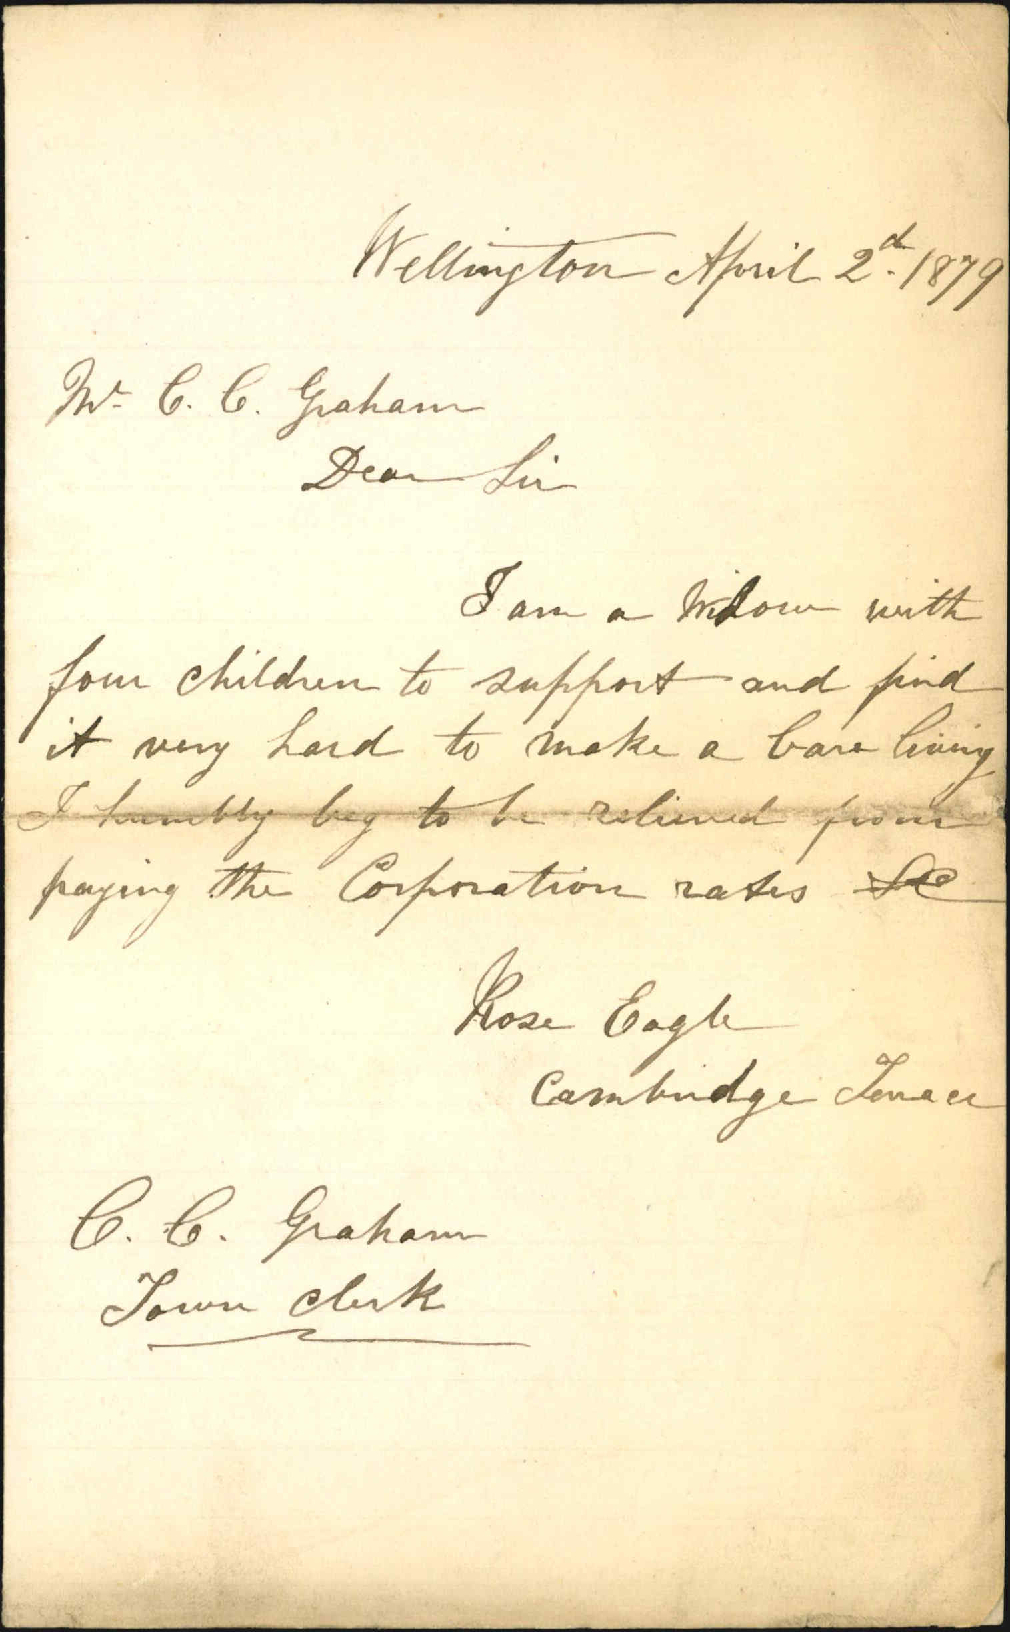 Wellington April 2d. 1879
Mr. C. C. Graham
Dear Sir
I am a Widow with
four children to support and find
it very hard to make a bare living
I humbly beg to be relieved from
paying the Corporation rates &c
Rose Eagle
Cambridge Terrace
C. C. Graham
Town Clerk